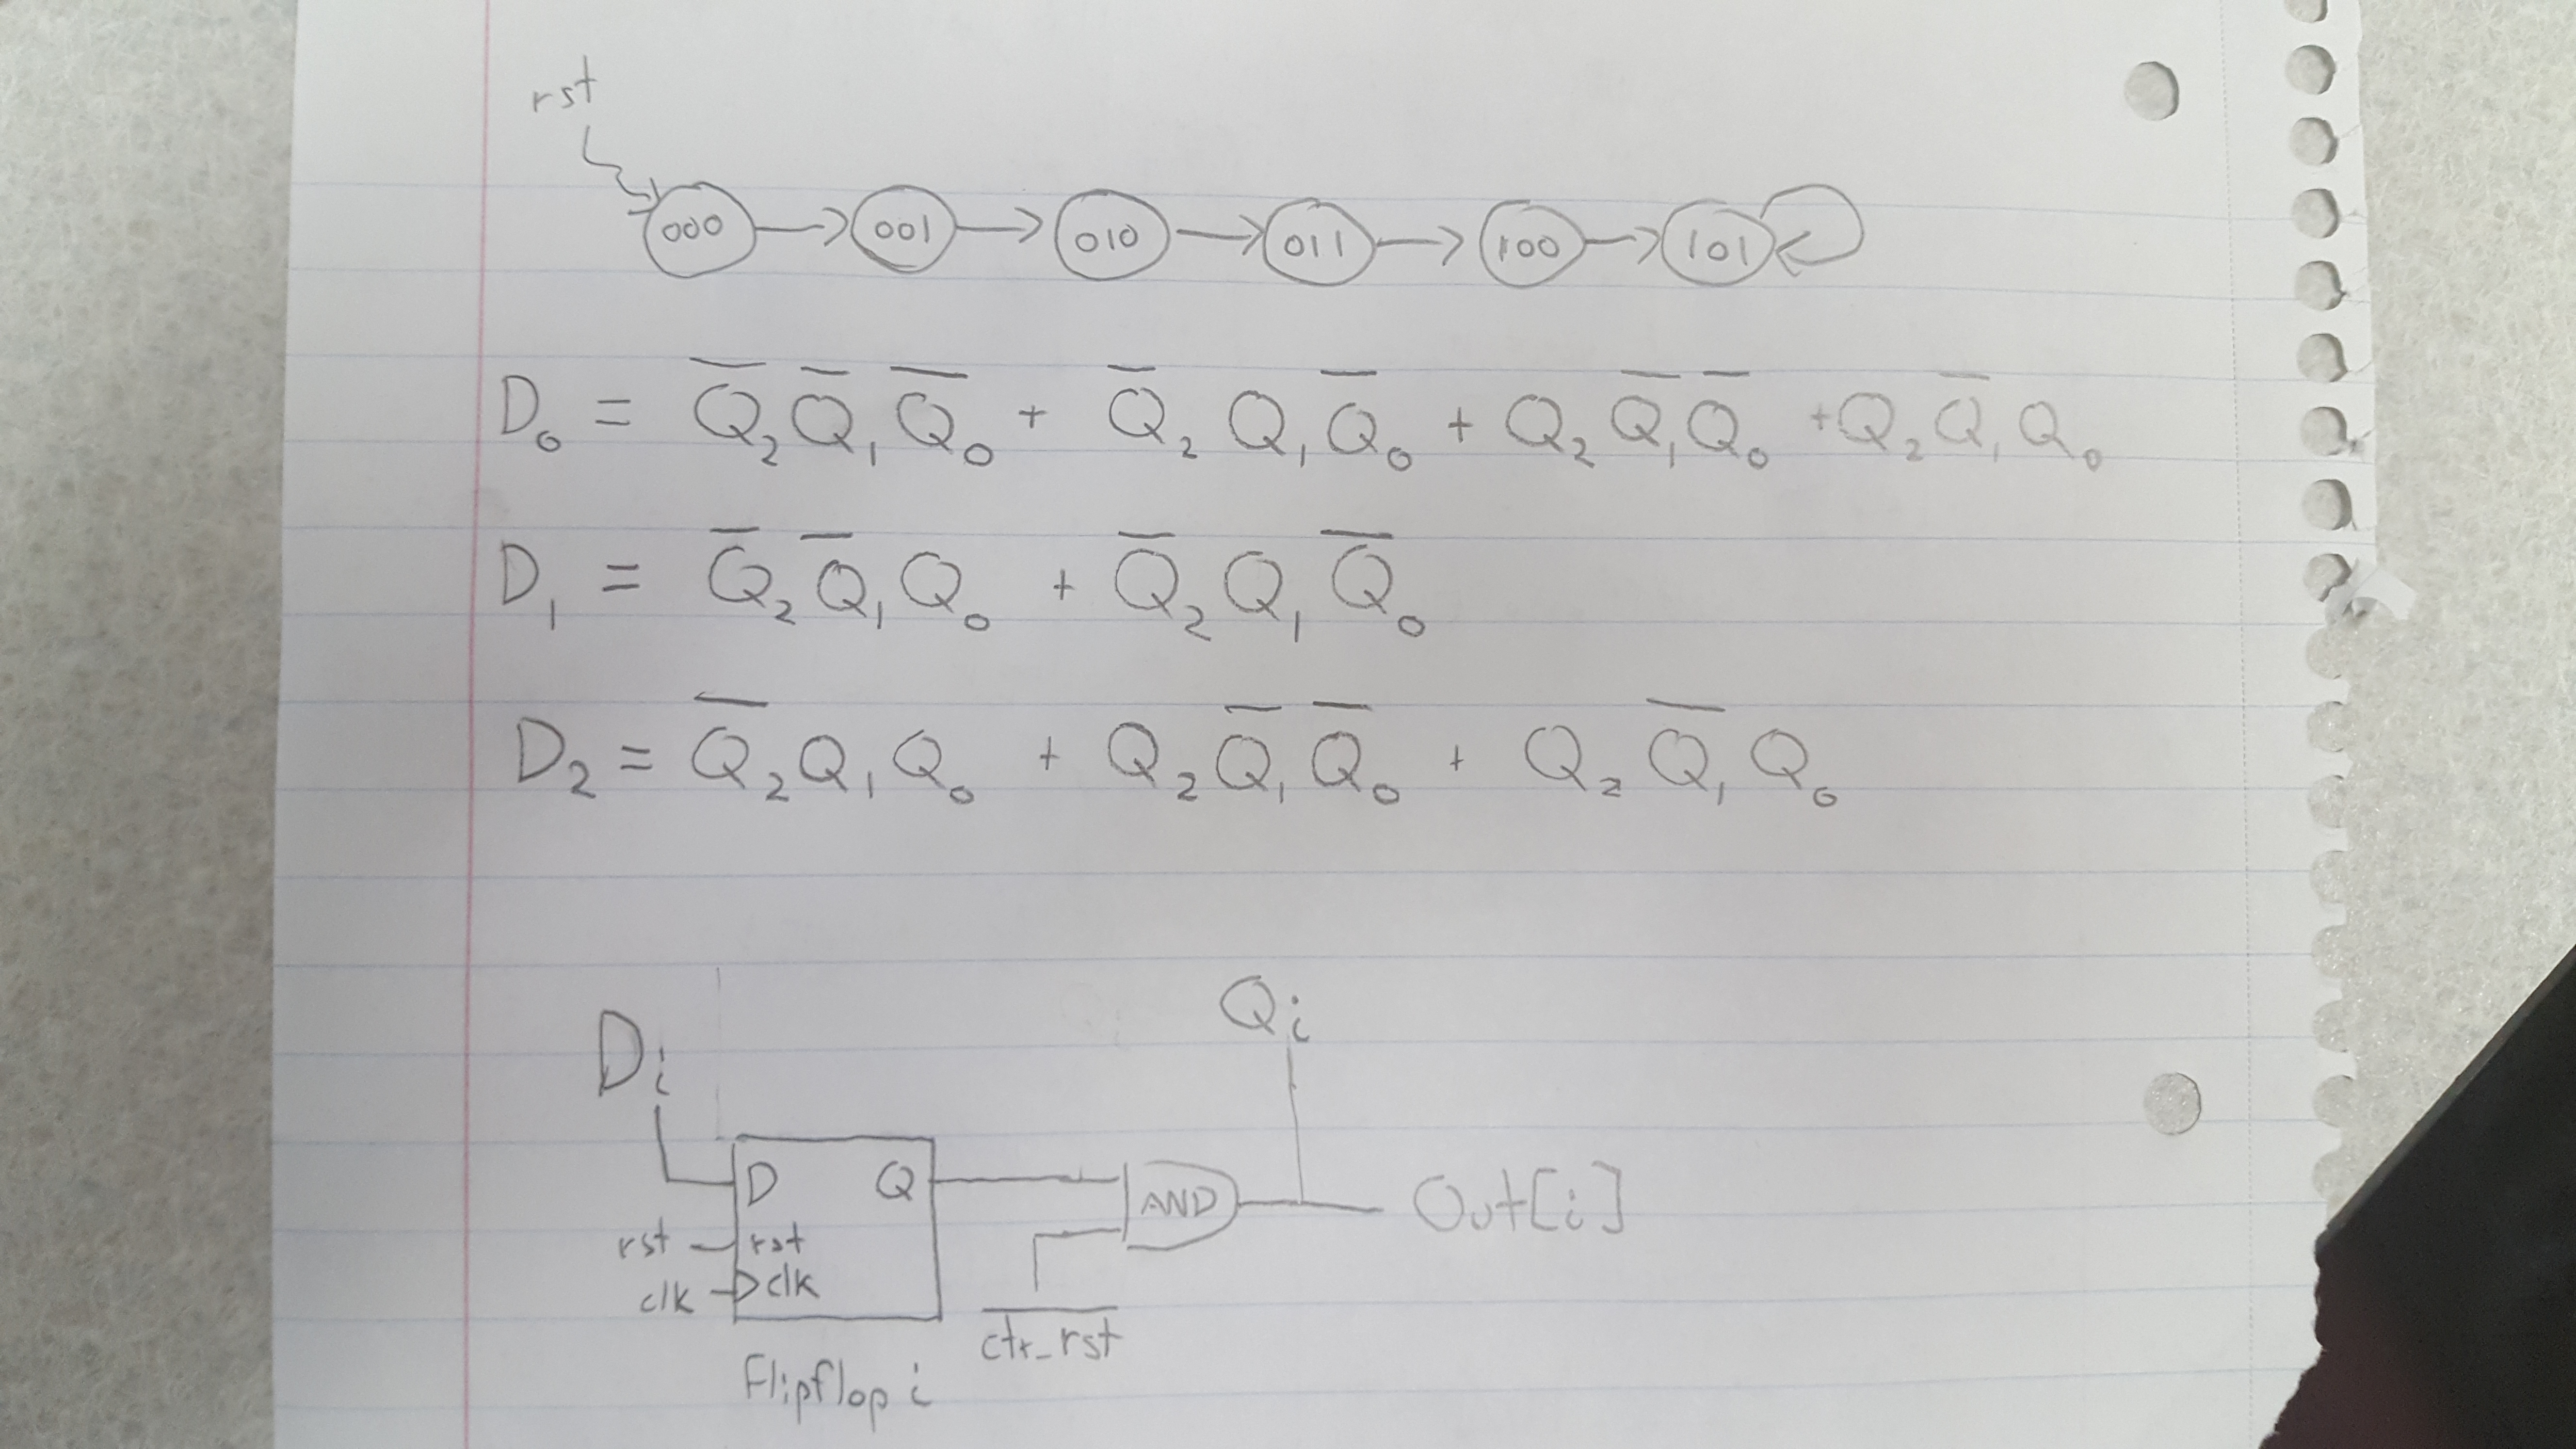 rst
000 001 010 011 100 101
D₀ = Q̅₂ Q̅₁ Q̅₀ + Q̅₂ Q₁ Q̅₀ + Q₂ Q̅₁ Q̅₀ + Q₂ Q̅₁ Q₀
D₁ = Q̅₂ Q̅₁ Q₀ + Q̅₂ Q₁ Q̅₀
D₂ = Q̅₂ Q₁ Q₀ + Q₂ Q̅₁ Q̅₀ + Q₂ Q̅₁ Q₀
Qᵢ
Dᵢ
D Q AND Out[i]
rst rst
clk clk
c̅t̅r̅_̅r̅s̅t̅
Flipflop i